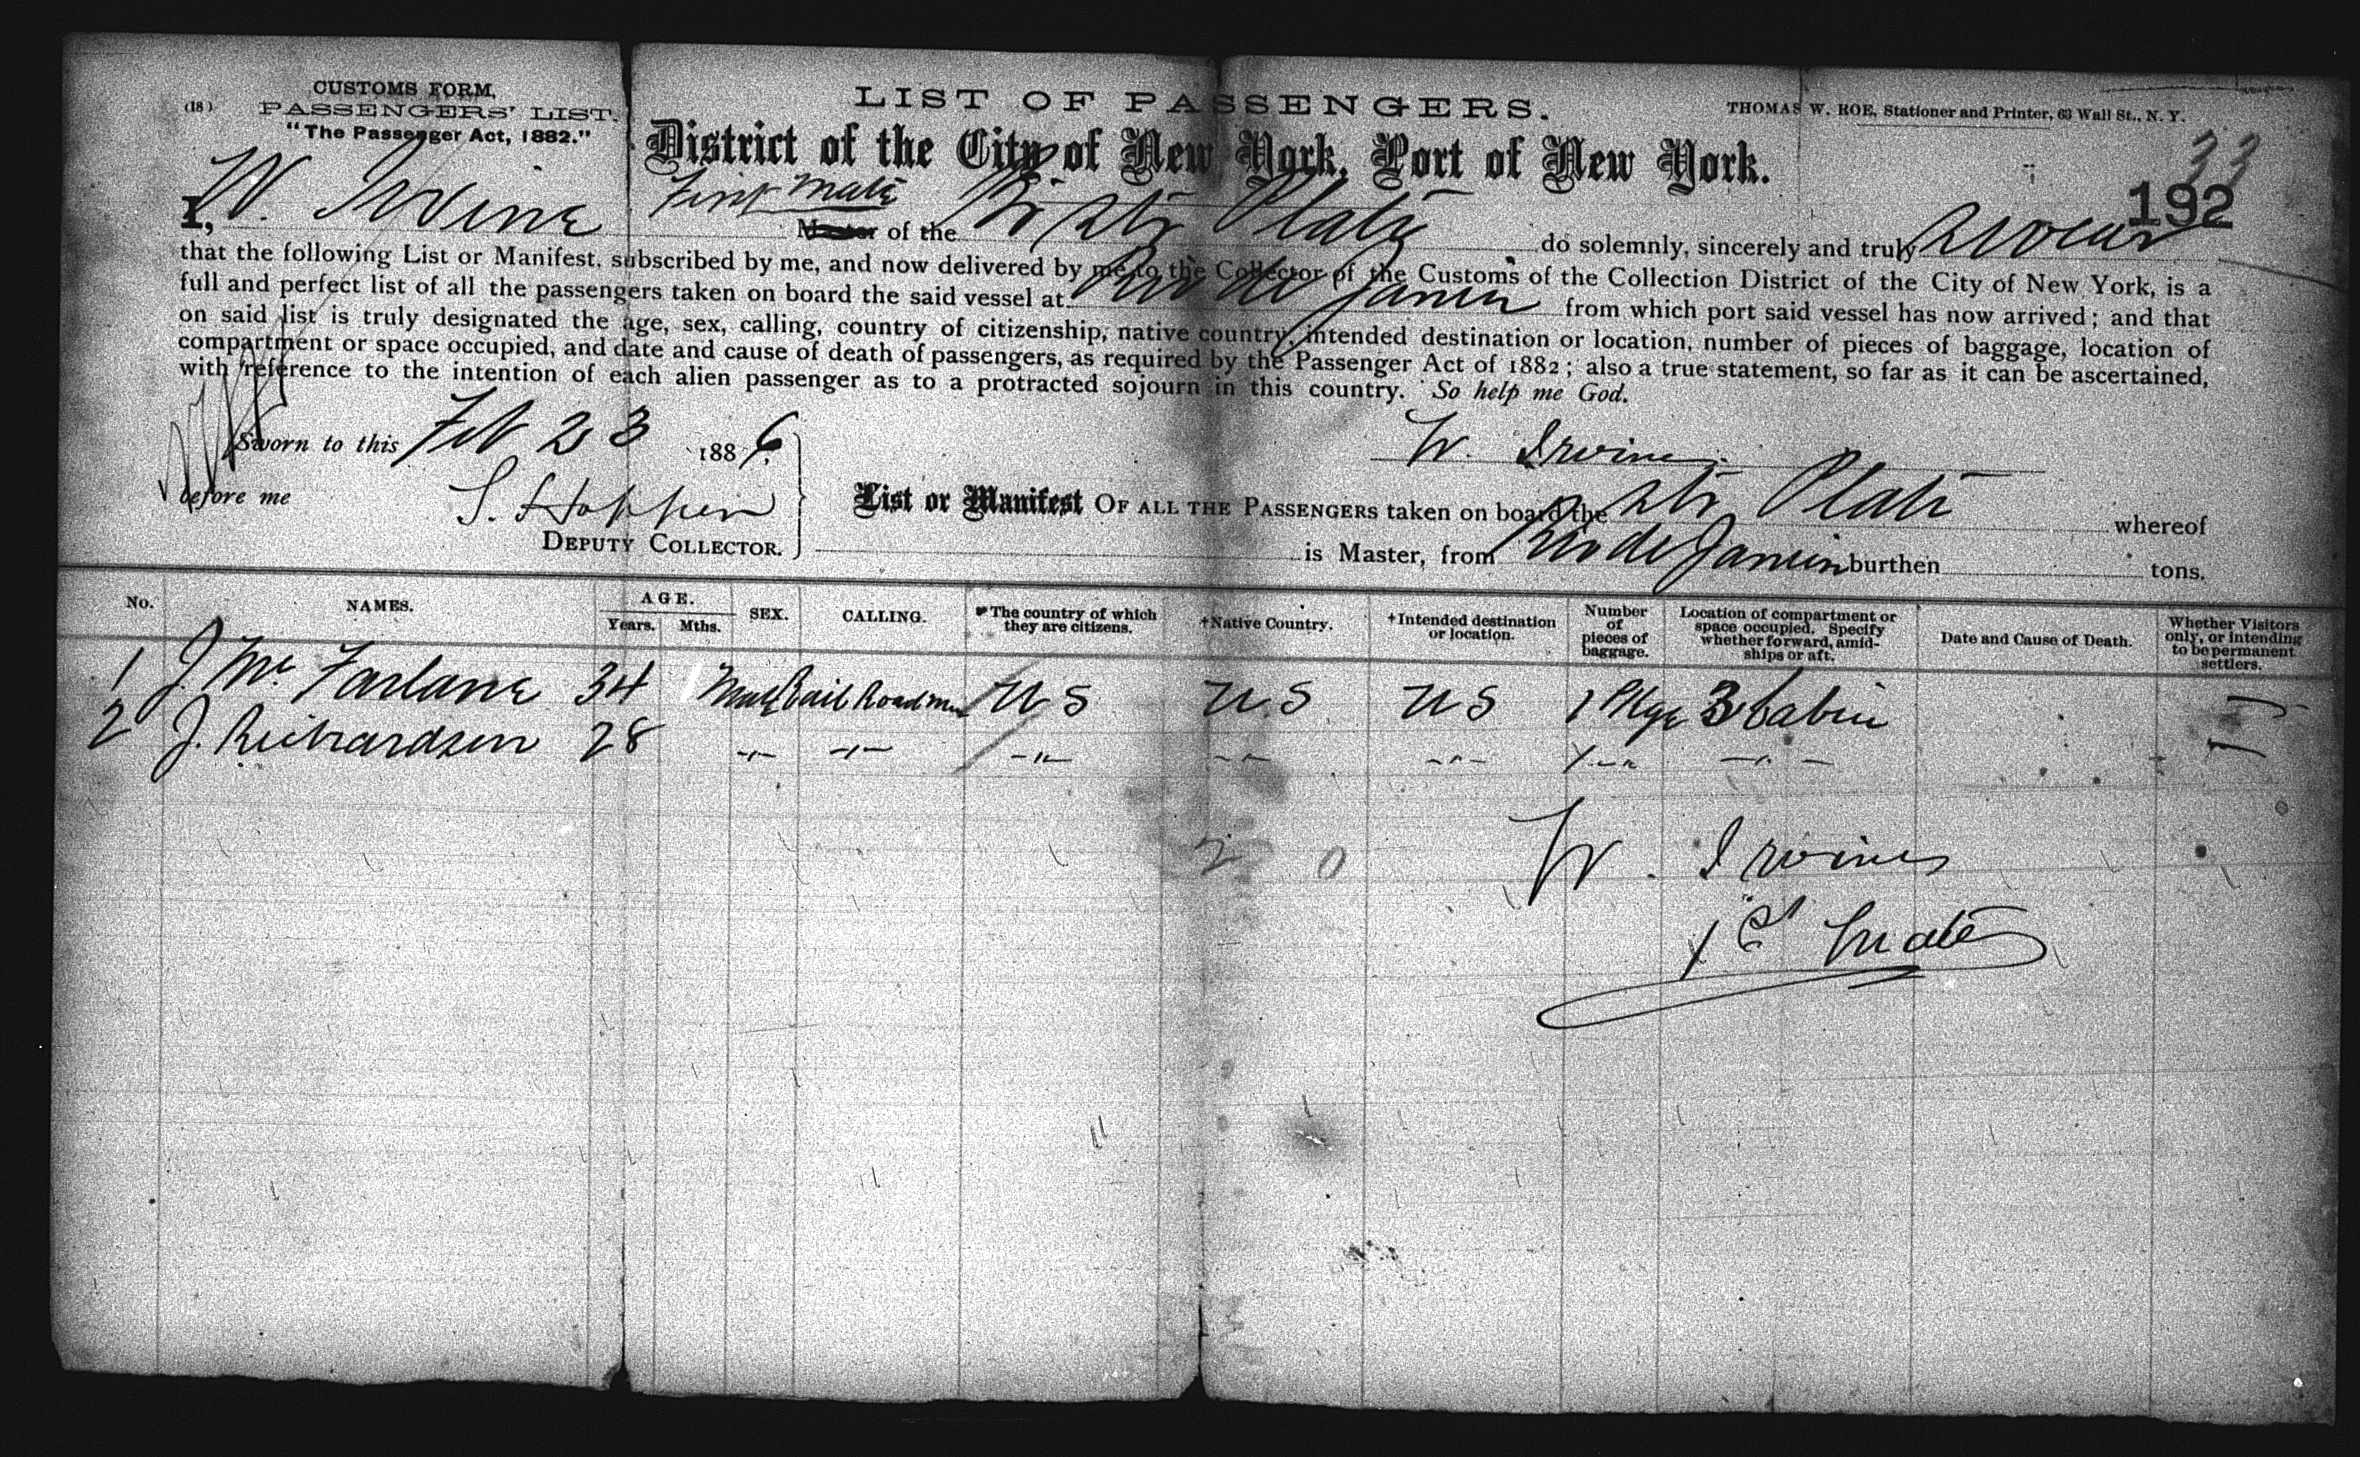 CUSTOMS FORM,
(18) PASSENGERS' LIST.
"The Passenger Act, 1882."
LIST OF PASSENGERS.
THOMAS W. ROE, Stationer and Printer, 63 Wall St., N. Y.
District of the City of New York, Port of New York.
33
192
I, W. Irvine First Mate Master of the Br Str Plate do solemnly, sincerely and truly swear
that the following List or Manifest, subscribed by me, and now delivered by me to the Collector of the Customs of the Collection District of the City of New York, is a
full and perfect list of all the passengers taken on board the said vessel at Rio de Janeiro from which port said vessel has now arrived; and that
on said list is truly designated the age, sex, calling, country of citizenship, native country, intended destination or location, number of pieces of baggage, location of
compartment or space occupied, and date and cause of death of passengers, as required by the Passenger Act of 1882; also a true statement, so far as it can be ascertained,
with reference to the intention of each alien passenger as to a protracted sojourn in this country. So help me God.
Sworn to this Feb 23 1886
W. Irvine
before me S. Hoppin
DEPUTY COLLECTOR.
List or Manifest OF ALL THE PASSENGERS taken on board the Str Plate whereof
is Master, from Rio de Janeiro burthen tons.
No. NAMES. AGE. Years. Mths. SEX. CALLING. *The country of which they are citizens. †Native Country. †Intended destination or location. Number of pieces of baggage. Location of compartment or space occupied. Specify whether forward, amidships or aft. Date and Cause of Death. Whether Visitors only, or intending to be permanent settlers.
1 J. Mc Farlane 34 Male Rail Road man U S U.S U S 1 Pkge 3 Cabin —
2 J. Richardson 28 -"- -"- -"- -"- -"- -"- -"- —
2 0
W. Irvine
1st Mate